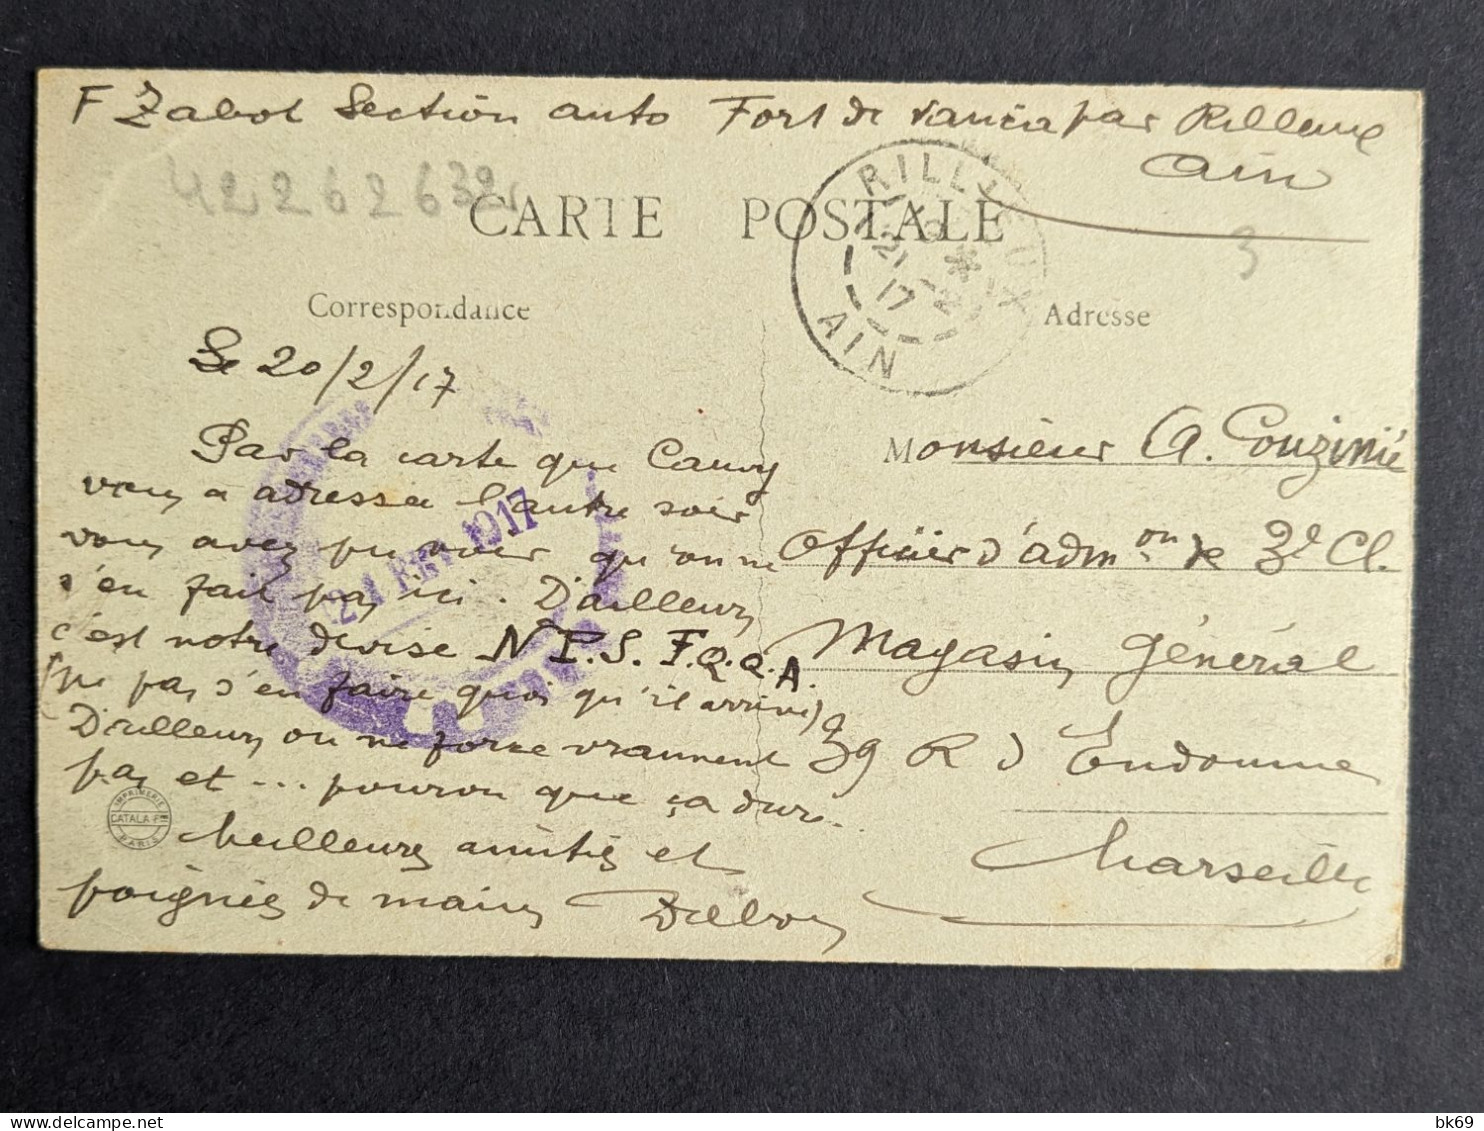 F Zabol Section auto Fort de Vancia par Rillieux
Ain
42262632
CARTE POSTALE
RILLIEUX
21 -2
17
AIN
3
Correspondance
Adresse
Le 20/2/17
Par la carte que Cauvy
vous a adressée l'autre soir
vous avez pu voir qu'on ne
s'en fait pas ici. D'ailleurs
c'est notre devise N P.S. F.Q.Q.A.
(Ne pas s'en faire quoi qu'il arrive)
D'ailleurs on ne force vraiment
pas et ... pourvu que ça dure..
Meilleures amitiés et
poignées de mains
21 FEV 1917
IMPRIMERIE
CATALA Fres
PARIS
Monsieur A. Couzinié
Officier d'admon de 3e Cl.
Magasin Général
39 R d'Endoume
Marseille
bk69